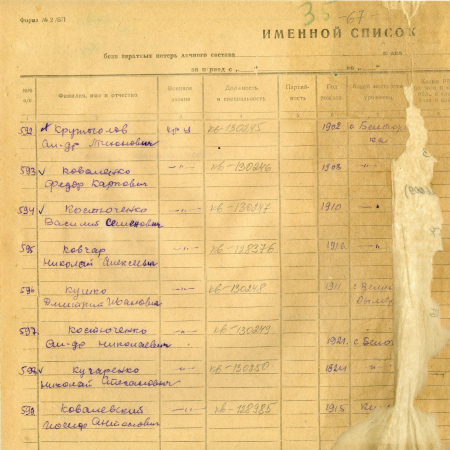 Форма № 2/БП
35
-67-
ИМЕННОЙ СПИСОК
безвозвратных потерь личного состава
за период с
№№ п/п
Фамилия, имя и отчество
Воинское звание
Должность и специальность
Партийность
Год рождения
592
Круттолов
Ал-др Тихонович
кр-ц
кв-130245
1902
с Белгор
ка
593
Коваленко
Федор Карпович
—"—
кв-130246
1903
594
Костюченко
Василий Семенович
—"—
кв-130247
1910
595
Ковчар
Николай Алексеевич
—"—
кв-128376
1916
596
Кушко
Дмитрий Иванович
—"—
кв-130248
1911
с Велик
Дымер
597
Костюченко
Ал-др Николаевич
—"—
кв-130249
1921
с Бело
598
Кучаренко
Николай Степанович
—"—
кв-130250
1924
599
Ковалевский
Иосиф Антонович
—"—
кв-128985
1915